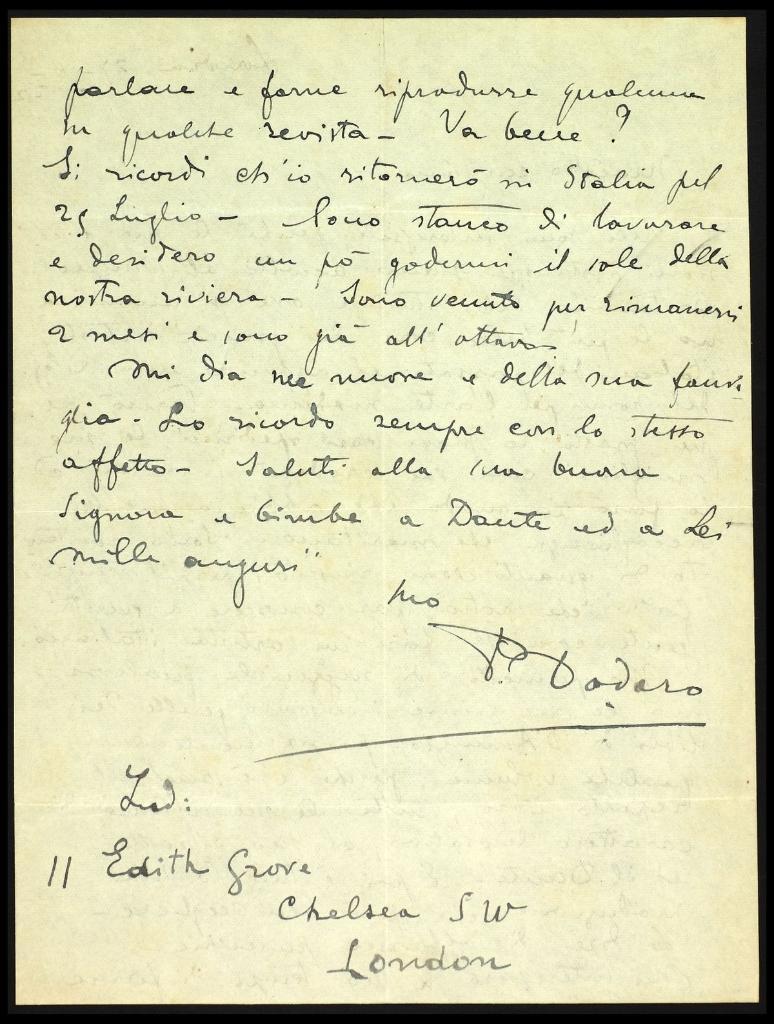 parlare e farne riprodurre qualcuna
in qualche revista – Va bene?
Si ricordi ch'io ritornerò in Italia pel
25 Luglio – Sono stanco di lavorare
e desidero un pò godermi il sole della
nostra riviera – Sono venuto per rimanervi
2 mesi e sono già all'ottavo
Mi dia sue nuove e della sua fami-
glia. Lo ricordo sempre con lo stesso
affetto – Saluti alla sua buona
Signora e bimbe a Dante ed a Lei
mille auguri
suo
P. Dodero
Ind:
11 Edith Grove
Chelsea SW
London